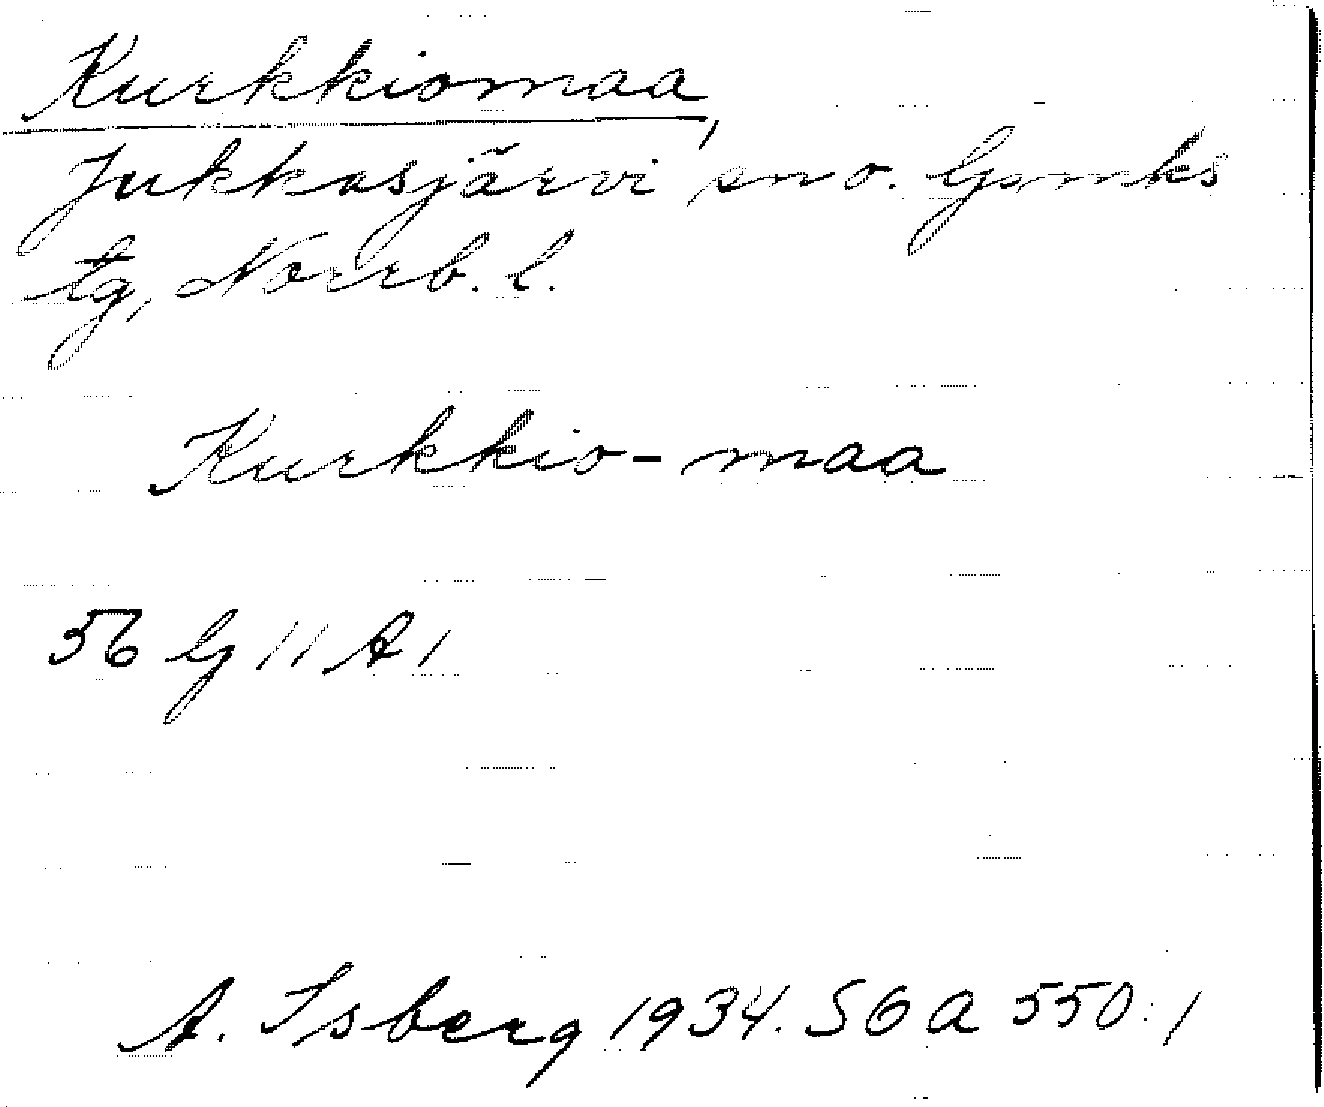 Kurkkiomaa,
Jukkasjärvi sn o. Gmks
tg, Norrb. l.
Kurkkio-maa
56 G 11 A 1
A. Isberg 1934. SGA 550:1